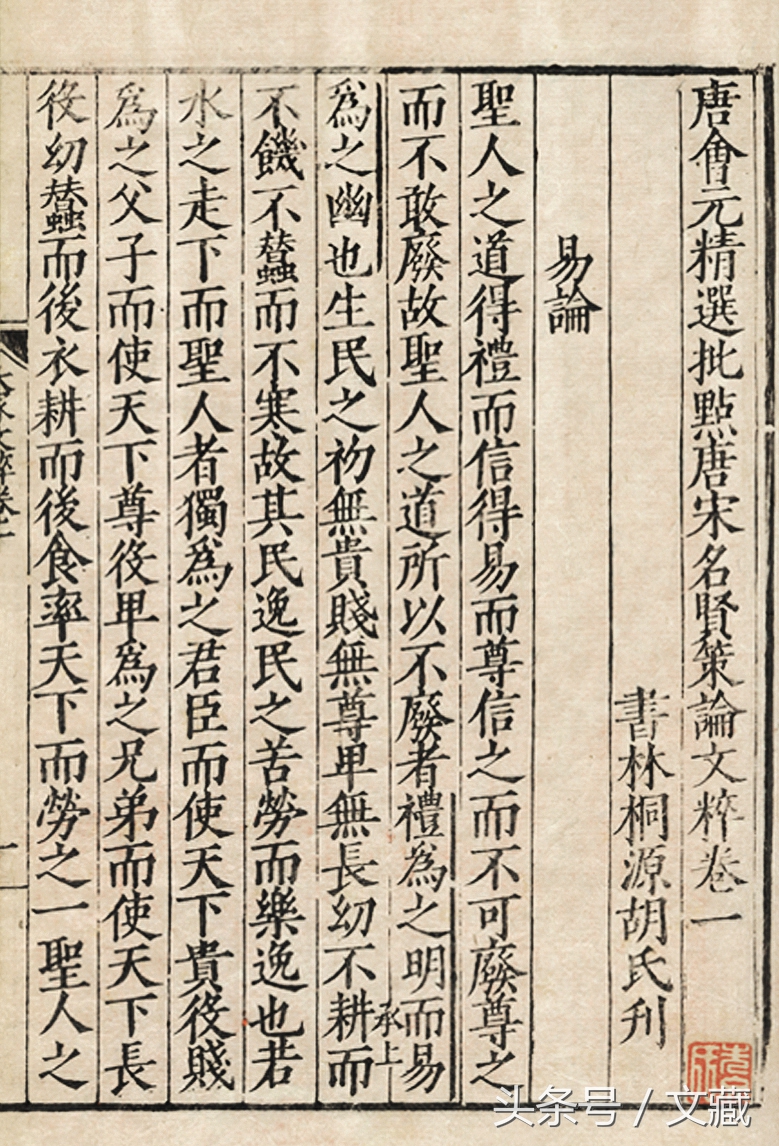 唐會元精選批點唐宋名賢策論文粹卷一
書林桐源胡氏刋
易論
聖人之道得禮而信得易而尊信之而不可廢尊之
而不敢廢故聖人之道所以不廢者禮爲之明而易
承上
爲之幽也生民之初無貴賤無尊卑無長幼不耕而
不饑不蠶而不寒故其民逸民之苦勞而樂逸也若
水之走下而聖人者獨爲之君臣而使天下貴役賤
爲之父子而使天下尊役卑爲之兄弟而使天下長
役幼蠶而後衣耕而後食率天下而勞之一聖人之
头条号 / 文藏